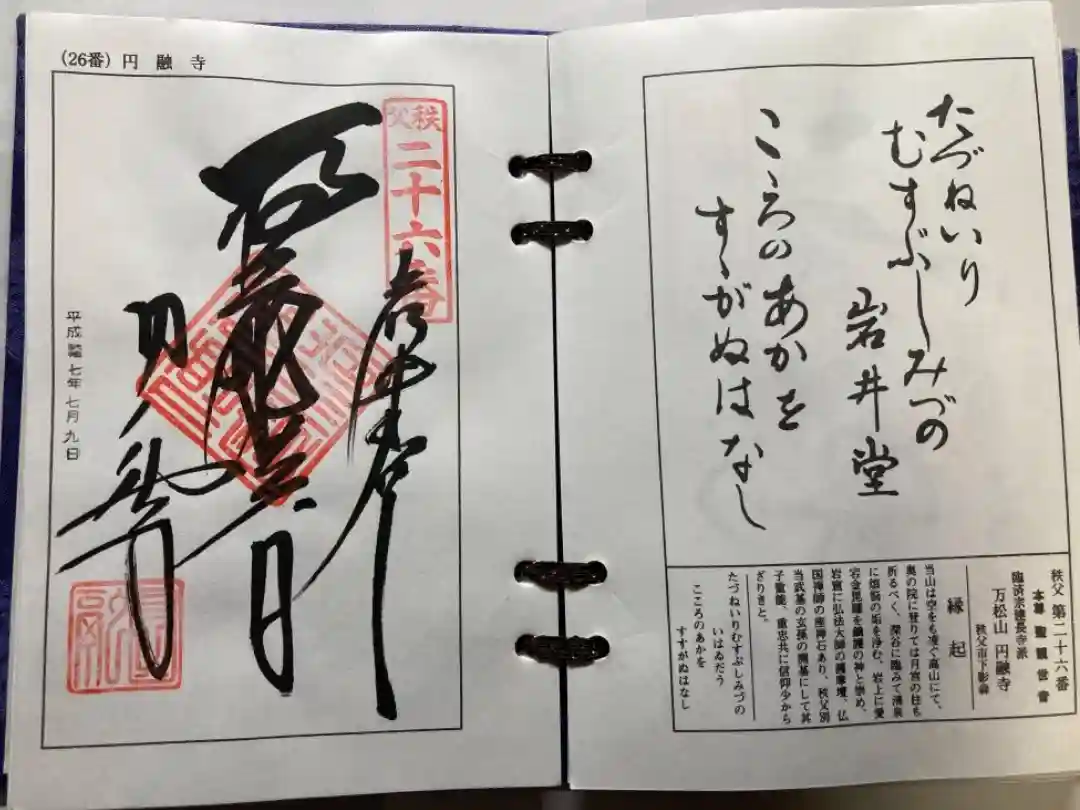 (26番) 円融寺
秩父
二十六番
奉拝
聖
円融寺
平成 七年七月九日
たづねいり
むすぶしみづの
岩井堂
こゝろのあかを
すゝがぬはなし
秩父 第二十六番
本尊 聖観世音
臨済宗建長寺派
万松山 円融寺
秩父市下影森
縁起
当山は空をも凌ぐ高山にて、
奥の院に登りては月宮の柱も
折るべく、深谷に臨みて清泉
に煩悩の垢を浄む、岩上に愛
宕金毘羅を鎮護の神と崇め、
岩窟に弘法大師の護摩壇、仏
国禅師の座禅石あり、秩父別
当武基の玄孫の開基にして其
子重能、重忠共に信仰少から
ざりきと。
たづねいりむすぶしみづの
いはゐだう
こころのあかを
すすがぬはなし